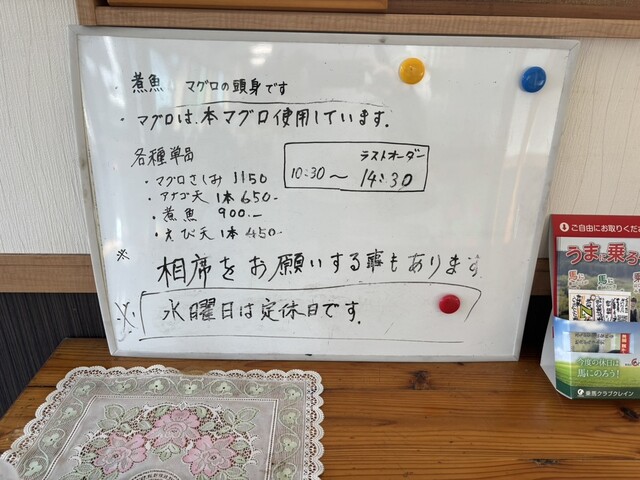 ・煮魚 マグロの頭身です
・マグロは、本マグロ使用しています。
各種単品
・マグロさしみ 1150
・アナゴ天 1本 650.-
・煮魚 900.-
・えび天 1本 450.-
ラストオーダー
10:30～14:30
※ 相席をお願いする事もあります
※ 水曜日は定休日です。
ご自由にお取りくだ
うまに乗ろ
今度の休日は
馬にのろう!
乗馬クラブクレイン